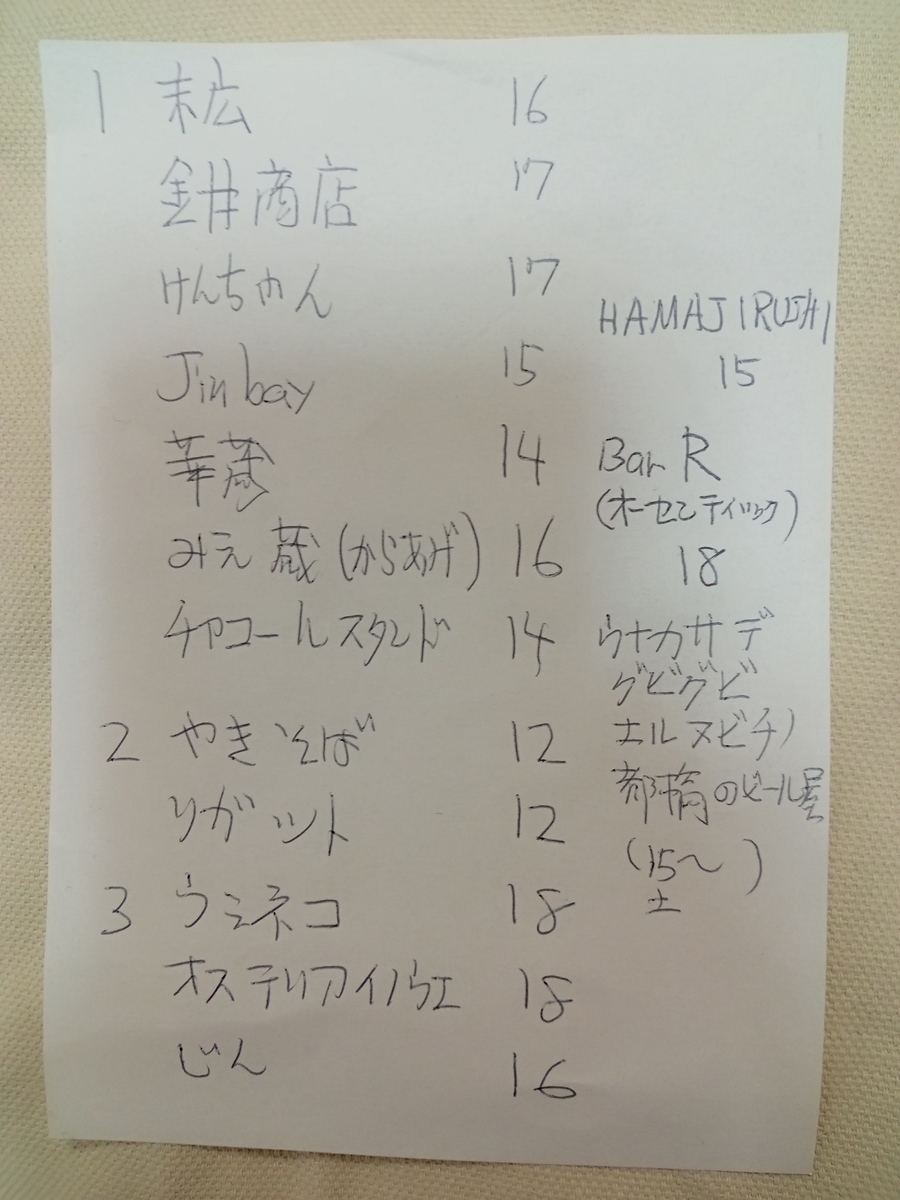 1 末広 16
金井商店 17
けんちゃん 17
Jin bay 15
華蔵 14
みえ蔵(からあげ) 16
チャコールスタンド 14
2 やきそば 12
リガット 12
3 ウミネコ 18
オステリアイノウエ 18
じん 16
HAMAJIRUSHI
15
Bar R
(オーセンティック)
18
ウナカサデ
グビグビ
エルヌビチノ
都橋のビール屋
(15〜 )
土